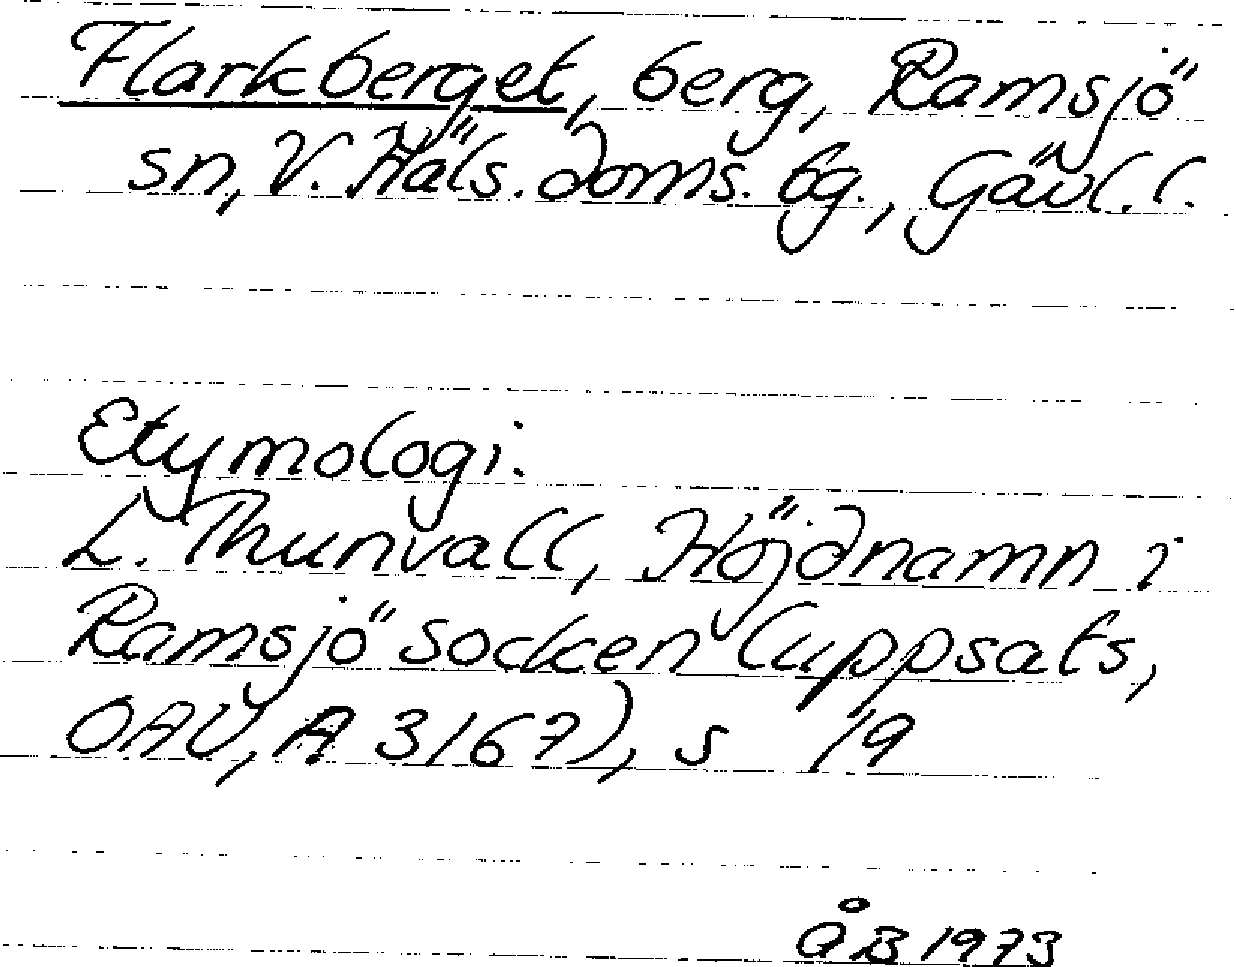 Flarkberget, berg, Ramsjö
sn, V. Häls. doms. bg., Gävl. l.
Etymologi:
L. Thunvall, Höjdnamn i
Ramsjö socken (uppsats,
OAU, A 3167), s 19
ÅB 1973